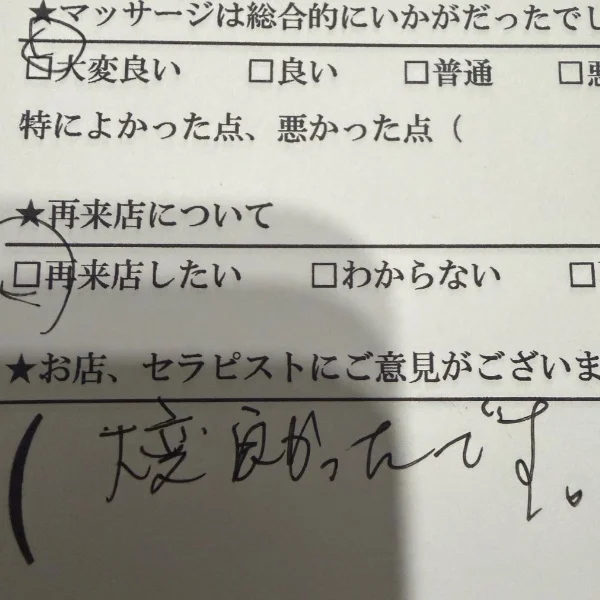 ★マッサージは総合的にいかがだったでし
□大変良い □良い □普通 □悪
特によかった点、悪かった点（
★再来店について
□再来店したい □わからない □
★お店、セラピストにご意見がございま
（大変良かったです。